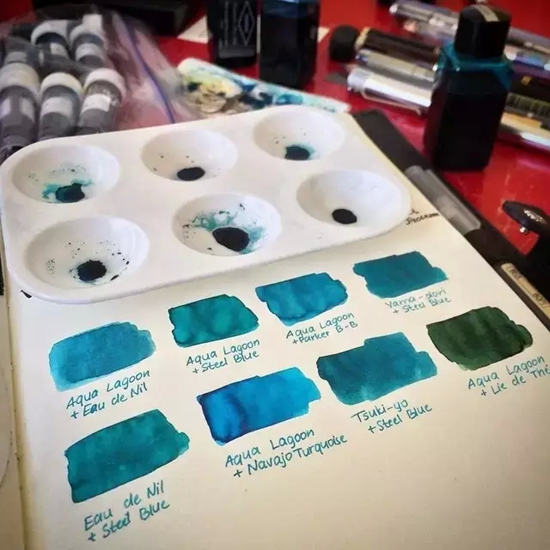 Aqua Lagoon
+ Eau de Nil
Aqua Lagoon
+ Steel Blue
Aqua Lagoon
+ Parker B-B
Yama-dori
+ Steel Blue
Eau de Nil
+ Steel Blue
Aqua Lagoon
+ Navajo Turquoise
Tsuki-yo
+ Steel Blue
Aqua Lagoon
+ Lie de Thé